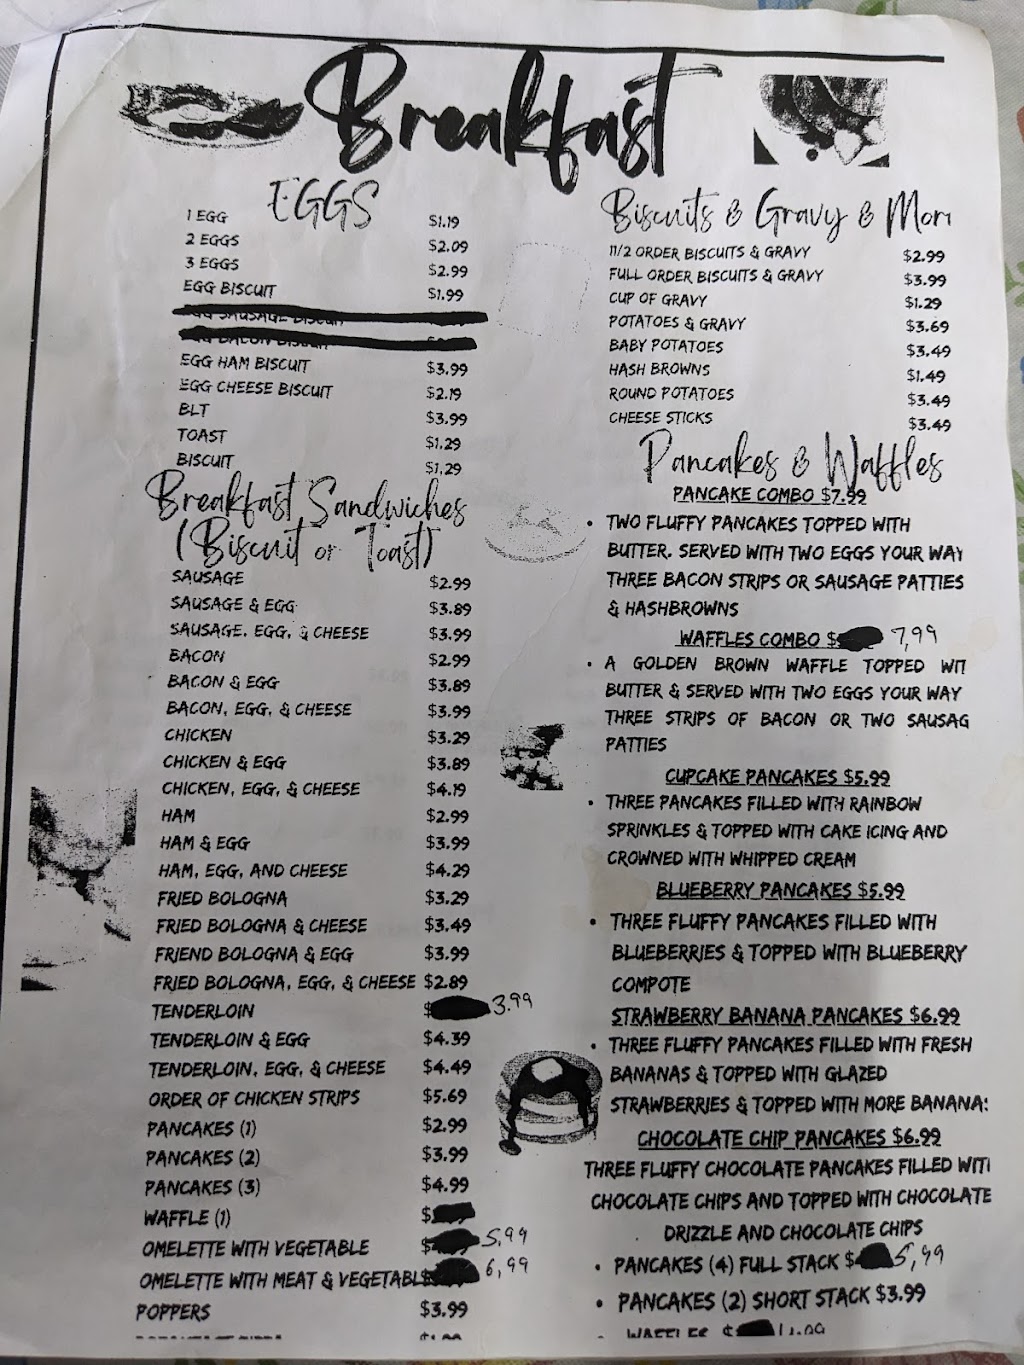 Breakfast
EGGS
1 EGG $1.19
2 EGGS $2.09
3 EGGS $2.99
EGG BISCUIT $1.99
EGG HAM BISCUIT $3.99
EGG CHEESE BISCUIT $2.19
BLT $3.99
TOAST $1.29
BISCUIT $1.29
Breakfast Sandwiches
(Biscuit or Toast)
SAUSAGE $2.99
SAUSAGE & EGG $3.89
SAUSAGE, EGG, & CHEESE $3.99
BACON $2.99
BACON & EGG $3.89
BACON, EGG, & CHEESE $3.99
CHICKEN $3.29
CHICKEN & EGG $3.89
CHICKEN, EGG, & CHEESE $4.19
HAM $2.99
HAM & EGG $3.99
HAM, EGG, AND CHEESE $4.29
FRIED BOLOGNA $3.29
FRIED BOLOGNA & CHEESE $3.49
FRIEND BOLOGNA & EGG $3.99
FRIED BOLOGNA, EGG, & CHEESE $2.89
TENDERLOIN $ 3.99
TENDERLOIN & EGG $4.39
TENDERLOIN, EGG, & CHEESE $4.49
ORDER OF CHICKEN STRIPS $5.69
PANCAKES (1) $2.99
PANCAKES (2) $3.99
PANCAKES (3) $4.99
WAFFLE (1) $
OMELETTE WITH VEGETABLE $ 5,99
OMELETTE WITH MEAT & VEGETABL$ 6,99
POPPERS $3.99
Biscuits & Gravy & Mor
11/2 ORDER BISCUITS & GRAVY $2.99
FULL ORDER BISCUITS & GRAVY $3.99
CUP OF GRAVY $1.29
POTATOES & GRAVY $3.69
BABY POTATOES $3.49
HASH BROWNS $1.49
ROUND POTATOES $3.49
CHEESE STICKS $3.49
Pancakes & Waffles
PANCAKE COMBO $7.99
• TWO FLUFFY PANCAKES TOPPED WITH
BUTTER. SERVED WITH TWO EGGS YOUR WAY
THREE BACON STRIPS OR SAUSAGE PATTIES
& HASHBROWNS
WAFFLES COMBO $ 7,99
• A GOLDEN BROWN WAFFLE TOPPED WIT
BUTTER & SERVED WITH TWO EGGS YOUR WAY
THREE STRIPS OF BACON OR TWO SAUSAG
PATTIES
CUPCAKE PANCAKES $5.99
• THREE PANCAKES FILLED WITH RAINBOW
SPRINKLES & TOPPED WITH CAKE ICING AND
CROWNED WITH WHIPPED CREAM
BLUEBERRY PANCAKES $5.99
• THREE FLUFFY PANCAKES FILLED WITH
BLUEBERRIES & TOPPED WITH BLUEBERRY
COMPOTE
STRAWBERRY BANANA PANCAKES $6.99
• THREE FLUFFY PANCAKES FILLED WITH FRESH
BANANAS & TOPPED WITH GLAZED
STRAWBERRIES & TOPPED WITH MORE BANANA:
CHOCOLATE CHIP PANCAKES $6.99
THREE FLUFFY CHOCOLATE PANCAKES FILLED WITI
CHOCOLATE CHIPS AND TOPPED WITH CHOCOLATE
DRIZZLE AND CHOCOLATE CHIPS
• PANCAKES (4) FULL STACK $ 5,99
• PANCAKES (2) SHORT STACK $3.99
• WAFFLES $